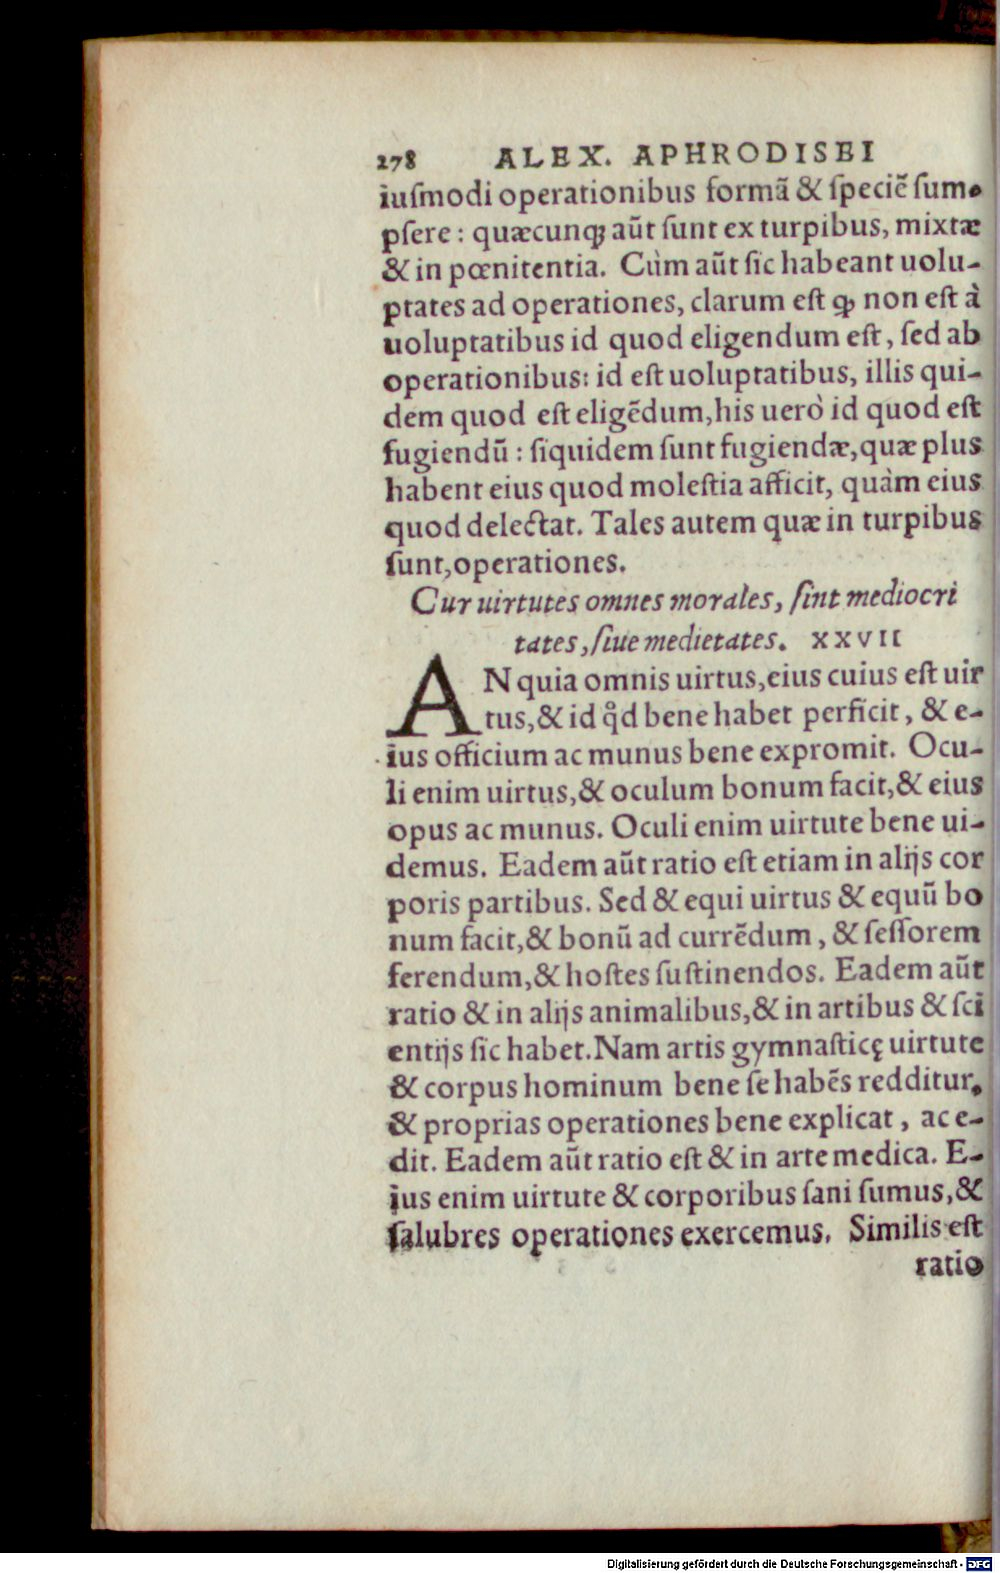 278 ALEX. APHRODISEI
iuſmodi operationibus formã & ſpeciẽ ſum-
pſere : quæcunqꝫ aũt ſunt ex turpibus, mixtæ
& in pœnitentia. Cùm aũt ſic habeant uolu-
ptates ad operationes, clarum eſt ꝙ non eſt à
uoluptatibus id quod eligendum eſt, ſed ab
operationibus: id eſt uoluptatibus, illis qui-
dem quod eſt eligẽdum, his uerò id quod eſt
fugiendũ : ſiquidem ſunt fugiendæ, quæ plus
habent eius quod moleſtia afficit, quàm eius
quod delectat. Tales autem quæ in turpibus
ſunt, operationes.
Cur uirtutes omnes morales, ſint mediocri
tates, ſiue medietates. XXVII
AN quia omnis uirtus, eius cuius eſt uir
tus, & id qd̊ bene habet perficit, & e-
ius officium ac munus bene expromit. Ocu-
li enim uirtus, & oculum bonum facit, & eius
opus ac munus. Oculi enim uirtute bene ui-
demus. Eadem aũt ratio eſt etiam in alijs cor
poris partibus. Sed & equi uirtus & equũ bo
num facit, & bonũ ad currẽdum, & ſeſſorem
ferendum, & hoſtes ſuſtinendos. Eadem aũt
ratio & in alijs animalibus, & in artibus & ſci
entijs ſic habet. Nam artis gymnaſticę uirtute
& corpus hominum bene ſe habẽs redditur,
& proprias operationes bene explicat, ac e-
dit. Eadem aũt ratio eſt & in arte medica. E-
ius enim uirtute & corporibus ſani ſumus, &
ſalubres operationes exercemus. Similis eſt
ratio
Digitalisierung gefördert durch die Deutsche Forschungsgemeinschaft - DFG